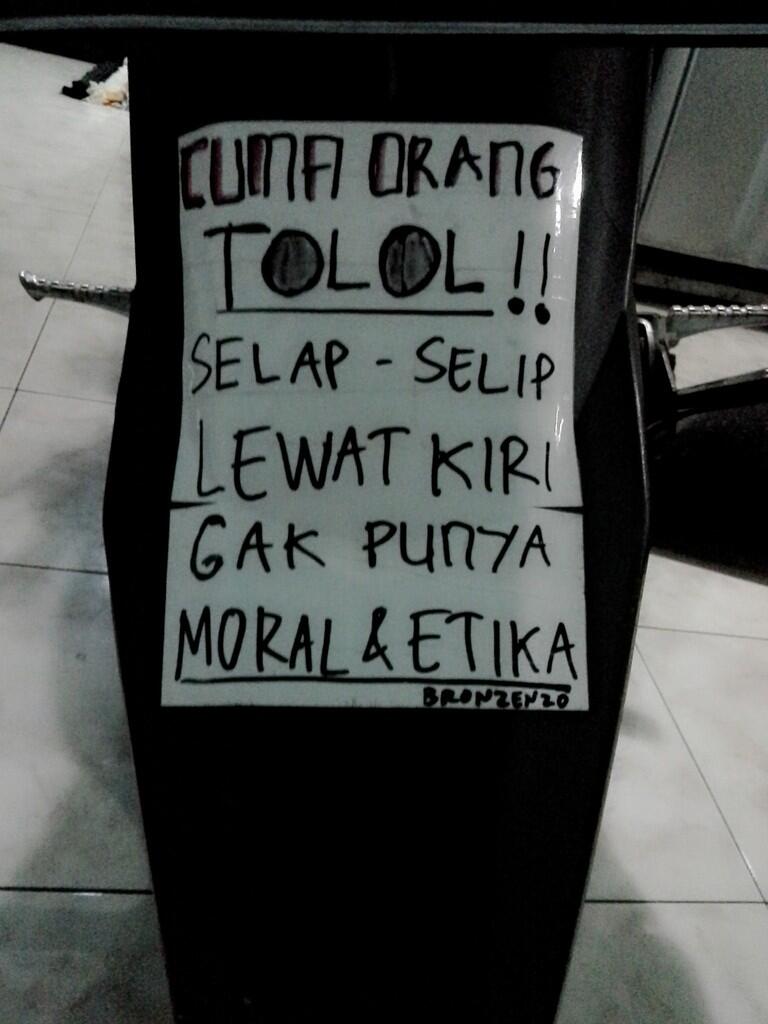 CUMA ORANG
TOLOL!!
SELAP - SELIP
LEWAT KIRI
GAK PUNYA
MORAL & ETIKA
BRONZENZO